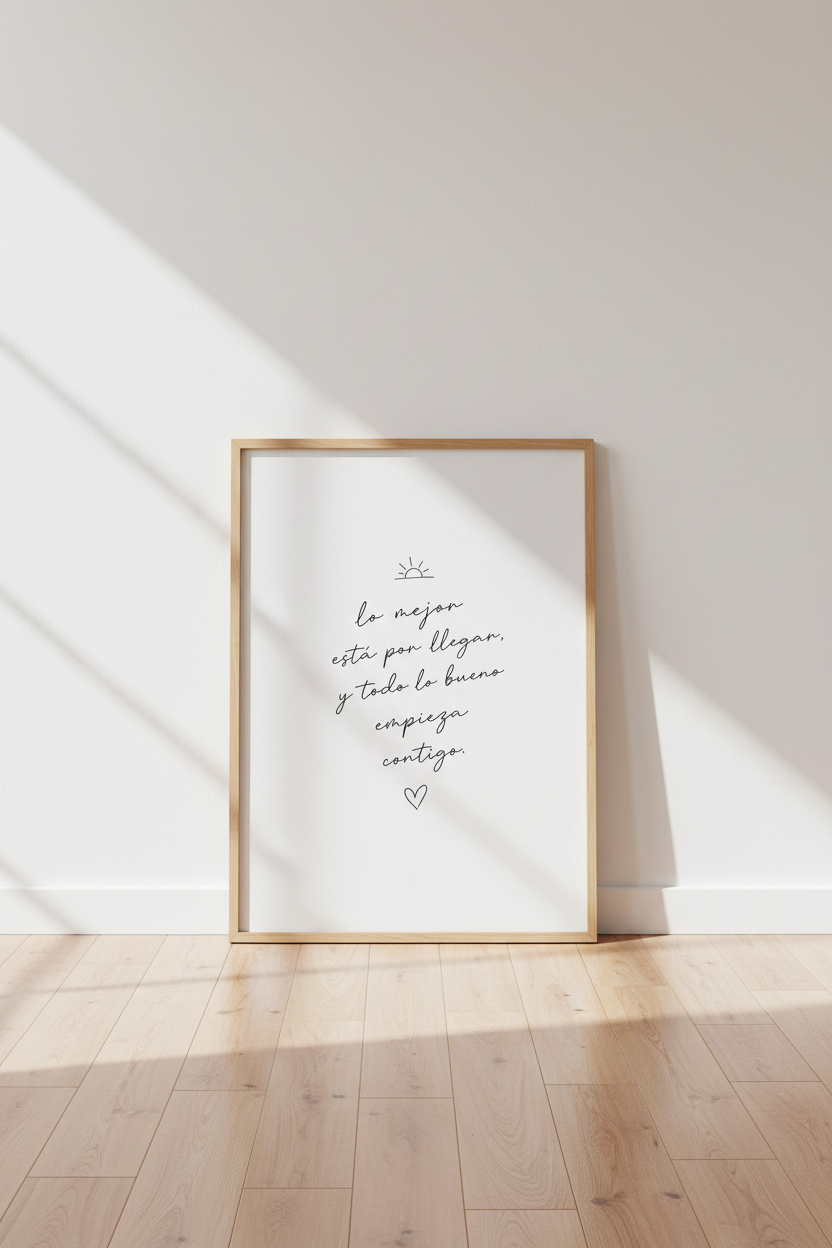 lo mejor
está por llegar,
y todo lo bueno
empieza
contigo.